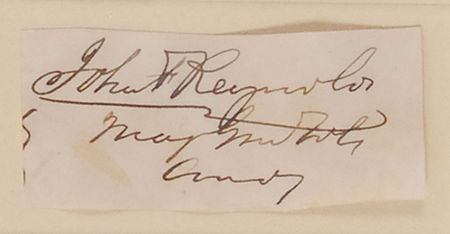 John F Reynolds
Maj Genl Vols
Comdg